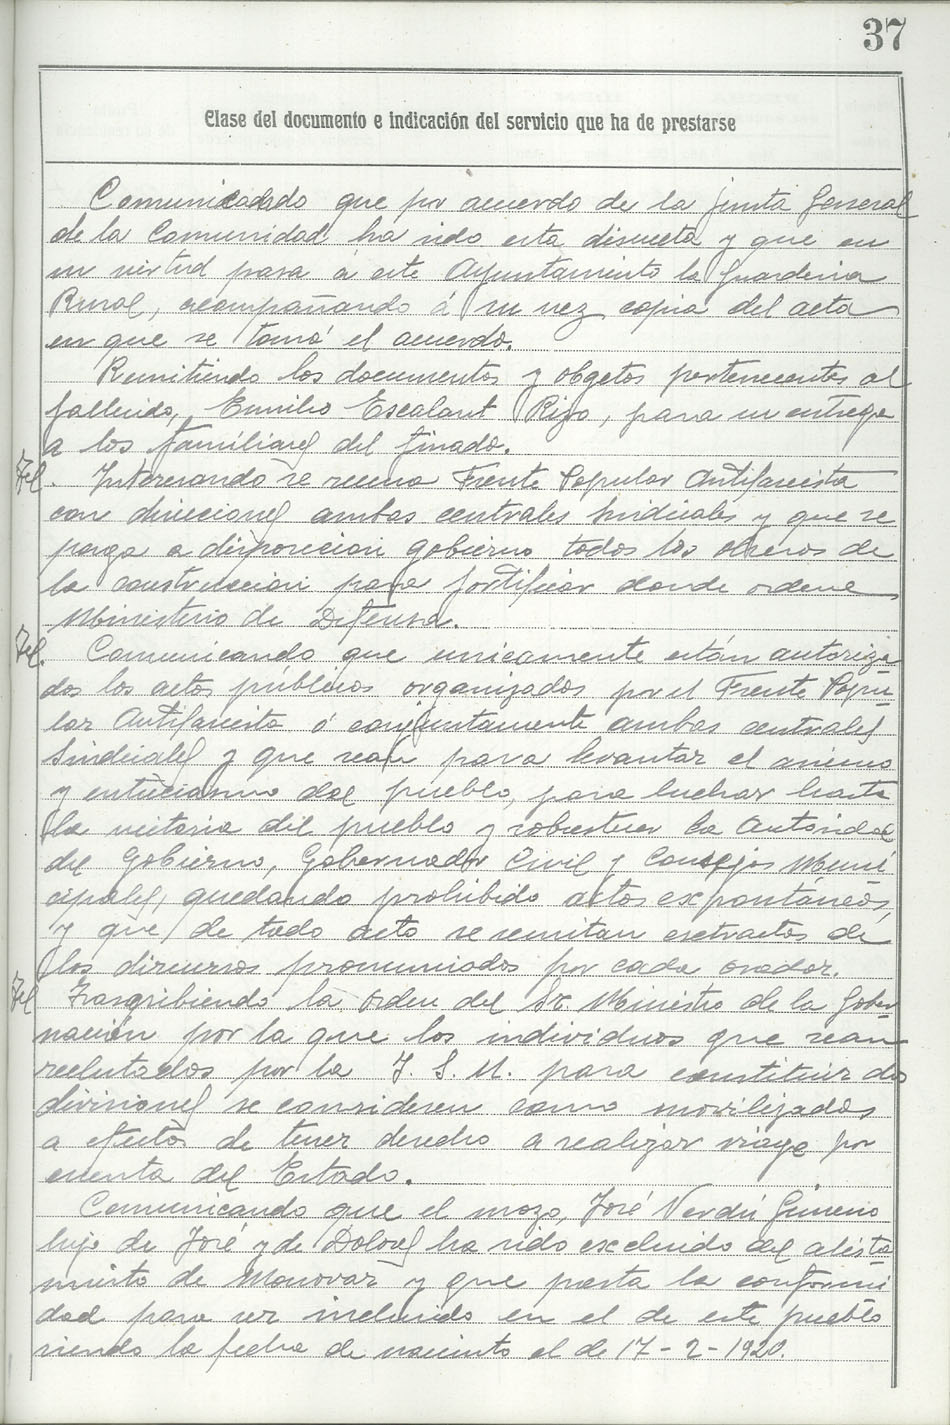 37
Clase del documento e indicación del servicio que ha de prestarse
Comunicando que por acuerdo de la junta General
de la Comunidad ha sido esta disuelta y que en
su virtud pasa á este Ayuntamiento la Guarderia
Rural, acompañando á su vez copia del acta
en que se tomó el acuerdo.
Remitiendo los documentos y obgetos pertenecientes al
fallecido, Emilio Escalant Rizo, para su entrega
a los familiares del finado.
Tel. Interesando se reuna Frente Popular Antifascista
con direcciones ambas centrales sindicales y que se
ponga a disposicion gobierno todos los obreros de
la construccion para fortificar donde ordene
Ministerio de Defensa.
Tel. Comunicando que unicamente están autoriza
dos los actos públicos organizados por el Frente Popu-
lar Antifascista ó conjuntamente ambas centrales
Sindicales y que sean para levantar el animo
y entusiasmo del pueblo, para luchar hasta
la victoria del pueblo y robustecer la Autoridad
del Gobierno, Gobernador Civil y Consejos Muni
cipales, quedando prohibido actos expontáneos,
y que de todo acto se remitan extractos de
los discursos pronunciados por cada orador.
Tel Trasgribiendo la orden del Sr. Ministro de la Gober-
nación por la que los individuos que sean
reclutados por la J. S. U. para constituir dos
divisiones se consideren como movilizados
a efectos de tener derecho a realizar viaje por
cuenta del Estado.
Comunicando que el mozo, José Verdú Gimeno
hijo de José y de Dolores ha sido excluido del alista
miento de Monovar y que pasta la conformi
dad para ser incluido en el de este pueblo
siendo la fecha de nacimto el de 17-2-1920.